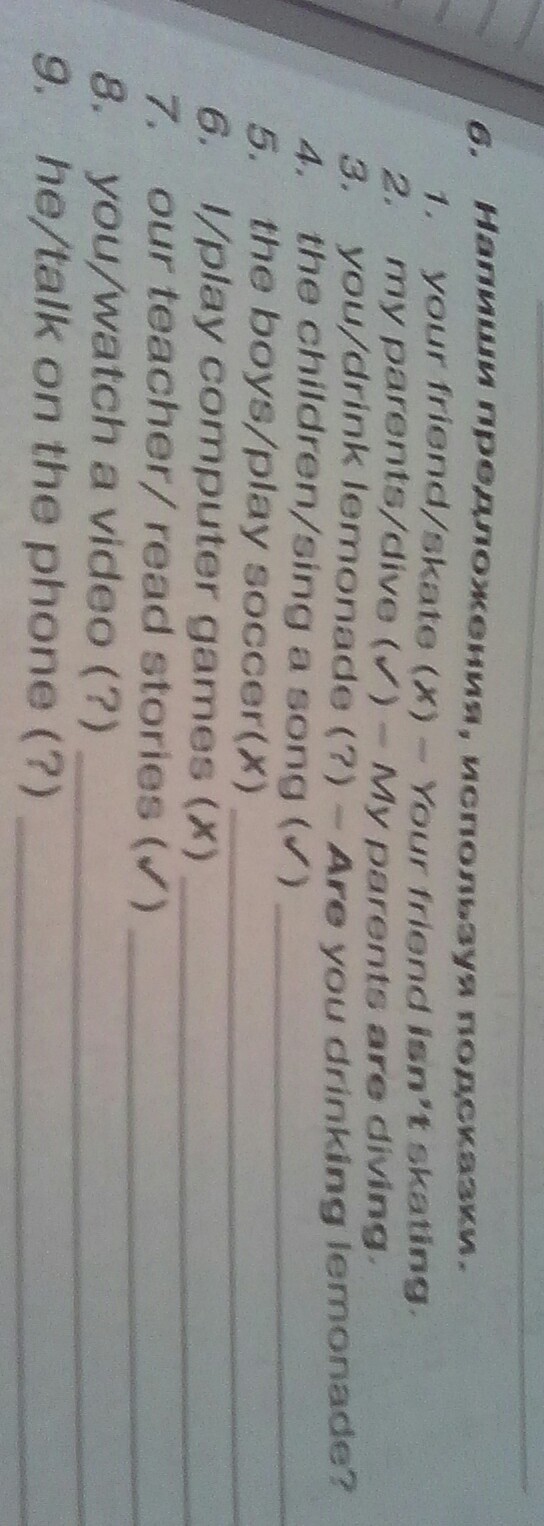 6. Напиши предложения, используя подсказки.
1. your friend/skate (x) – Your friend isn't skating.
2. my parents/dive (✓) – My parents are diving.
3. you/drink lemonade (?) – Are you drinking lemonade?
4. the children/sing a song (✓)
5. the boys/play soccer(x)
6. I/play computer games (x)
7. our teacher/ read stories (✓)
8. you/watch a video (?)
9. he/talk on the phone (?)